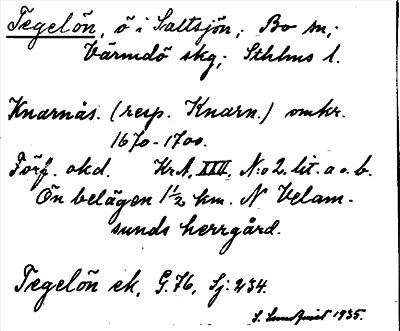 Tegelön, ö i Saltsjön; Bo sn;
Värmdö skg; Sthlms l.
Knarnäs (resp. Knarn.) omkr.
1670-1700.
Förf. okd. Kr.A. XXII, N:o 2 lit. a o. b.
Ön belägen 1½ km. N Velam-
sunds herrgård.
Tegelön ek. G. 76, Sj: 234.
S. Lundqvist 1935.